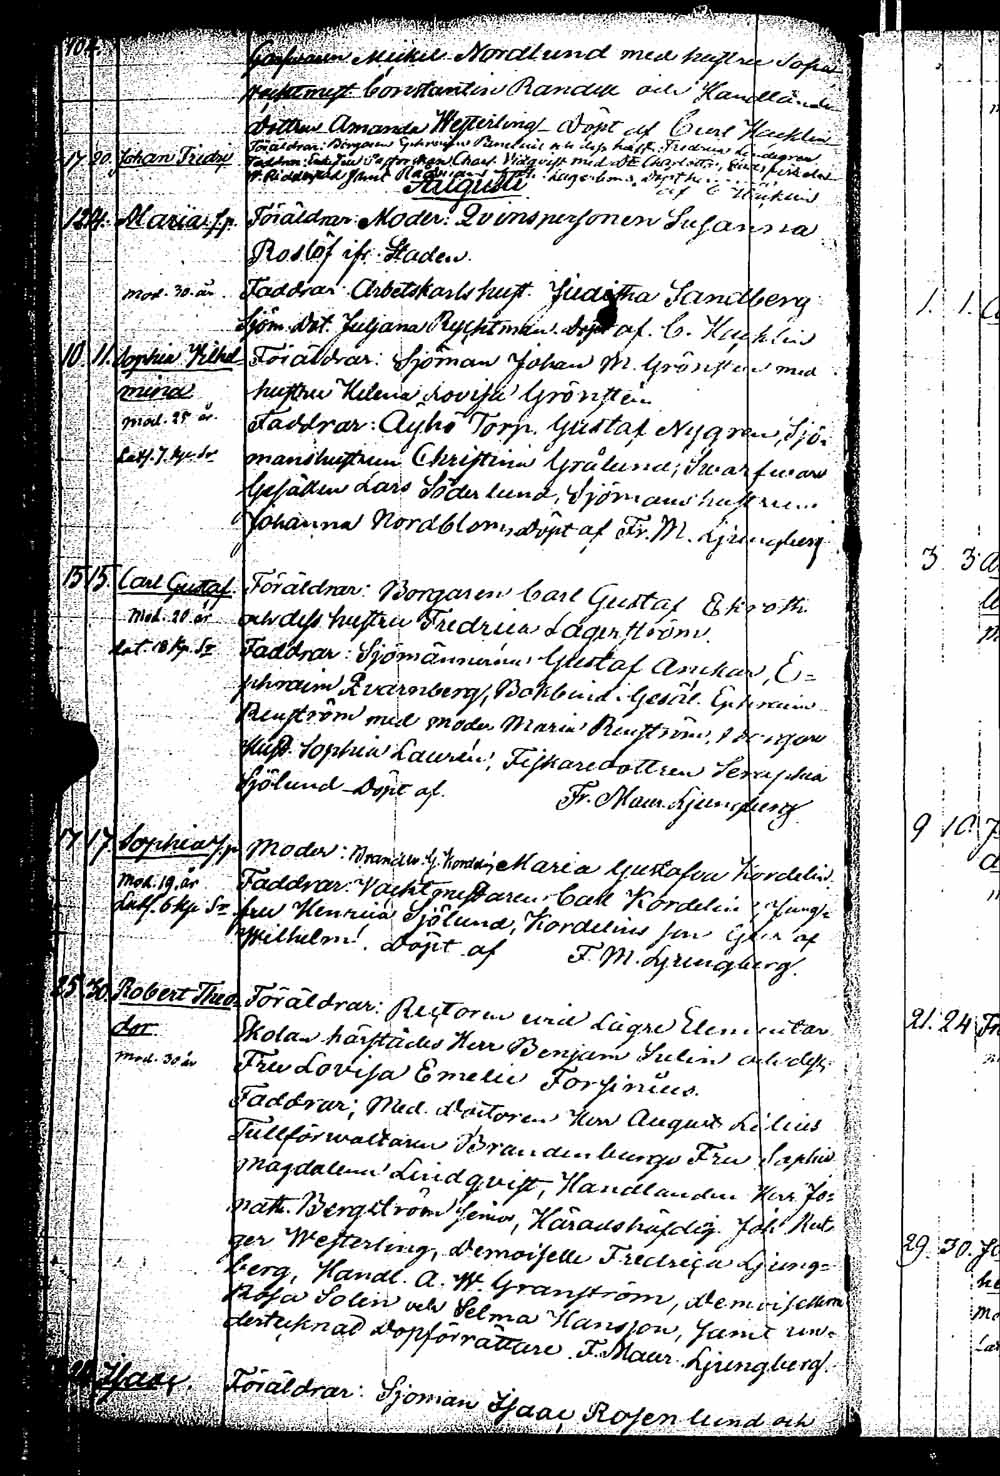 104.
Garfvaren Mickel Nordlund med hustru Sofia
Constantin Randell och Handlande
Dottren Amanda Westerling. Döpt af Carl Hucklin
17 20. Johan Fredr. Föräldrar: Borgaren Ephraim och dess hust. Fredrica Lindegren
Faddrar: Charl. Vidqvist med
samt
af C Hucklin
Augusti
12 14. Maria f.p. Föräldrar: Moder: Qvinspersonen Susanna
Roslöf ifr. Staden.
Mod. 30. år Faddrar. Arbetskarls hust. Juditha Sandberg
Sjöm. Dot. Juljana Rychtman. Döpt af. C. Hucklin
10. 11. Sophia Vilhel- Föräldrar: Sjöman Johan M. Grönsten med
mina hustru Helena Lovisa Grönsten.
Mod. 25 år. Faddrar: Åyhö Torp. Gustaf Nygren, Sjö-
Latf. 7. Kp. Sr manshustrun Christina Grålund; Swarfware
Gesällen Lars Söderlund, Sjömans hustrun
Johanna Nordblom, Döpt af Fr. M. Ljungberg
15 15. Carl Gustaf. Föräldrar: Borgaren Carl Gustaf Ekroth
Mod. 20 år och dess hustru Fredrica Lagerström.
Lat. 18 Kp. Sr Faddrar: Sjömännerne: Gustaf Anckar, E=
phraim Qvarnberg, Bokbind. Gesäl. Ephraim
Renström med moder Maria Renström,
Hust. Sophia Laurén, Fiskaredottren Seraphia
Sjölund Döpt af. Fr. Maur. Ljungberg
17 17. Sophia f.p. Moder: Brandv. G. Kordelins Maria Gustafva Kordelin.
Mod. 19. år Faddrar: Vachtmestaren Carl Kordelin, Jung-
Latf. 6 Kp. Sr fru Henrica Sjölund, Kordelins son af
Wilhelm. Döpt af F. M. Ljungberg.
25 30. Robert Theo- Föräldrar: Rectoren wid Lägre Elementar
dor Skolan härstädes Herr Benjam Sulin och dess
Mod. 30 år Fru Lovisa Emelie Forsinius.
Faddrar; Med. Doctoren Herr August Lilius
Tullförwaltaren Brandenburgs Fru Sophie
Magdalena Lindqvist, Handlanden Herr Jo=
nath. Bergström senior, Häradshöfdig. Joh: Rut-
ger Westerling, Demoiselle Fredrica Ljung=
berg, Handl. A. W. Granström, Demoisellerna
Rosa Solin och Selma Hansson, samt un=
dertecknad Dopförrättare. F. Maur. Ljungberg.
Isaac. Föräldrar: Sjöman Isaac Rosenlund och
1. 1.
3 3
9 10
21. 24
29. 30.